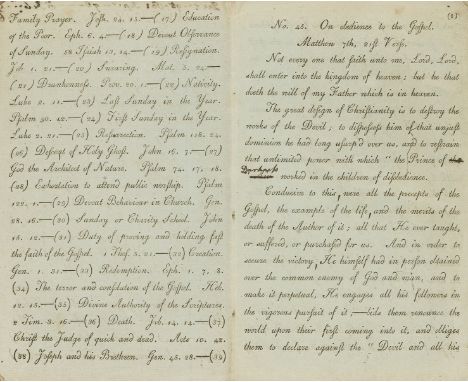 Family Prayer. Josh. 24. 15.—(17) Education
of the Poor. Eph. 6. 4.—(18) Devout Observance
of Sunday. 58 Isaiah 13, 14.—(19) Resignation.
Job 1. 21.—(20) Swearing. Mat. 5. 34.—
(21) Drunkenness. Prov. 20. 1.—(22) Nativity.
Luke 2. 11.—(23) Last Sunday in the Year.
Psalm 90. 12.—(24) First Sunday in the Year.
Luke 2. 21.—(25) Resurrection. Psalm 118. 24.
(26) Descent of Holy Ghost. John 16. 7.—(27)
God the Architect of Nature. Psalm 74. 17, 18.
(28) Exhortation to attend public worship. Psalm
122. 1.—(29) Devout Behaviour in Church. Gen.
28. 16.—(30) Sunday or Charity School. John
15. 12.—(31) Duty of proving and holding fast
the faith of the Gospel. 1 Thes. 5. 21.—(32) Creation.
Gen. 1. 31.—(33) Redemption. Eph. 1. 7, 8.
(34) The terror and consolation of the Gospel. Heb.
12. 15.—(35) Divine Authority of the Scriptures.
2 Tim. 3. 16.—(36) Death. Job. 14. 14.—(37)
Christ the Judge of quick and dead. Acts 10. 42.
(38) Joseph and his Brethren. Gen. 45. 28.—(39)
(1)
No. 45. On obedience to the Gospel.
Matthew 7th, 21st Verse.
Not every one that saith unto me, Lord, Lord,
shall enter into the kingdom of heaven; but he that
doeth the will of my Father which is in heaven.
The great design of Christianity is to destroy the
works of the Devil; to dispossess him of that unjust
dominion he had long usurp'd over us, and to restrain
that unlimited power with which "the Prince of the
Darkness worked in the children of disobedience.
Conducive to this, were all the precepts of the
Gospel, the example of the life, and the merits of the
death of the Author of it; all that He ever taught,
or suffered, or purchased for us. And in order to
secure the victory, He himself had in person obtained
over the common enemy of God and man, and to
make it perpetual, He engages all his followers in
the vigorous pursuit of it;—bids them renounce the
world upon their first coming into it, and obliges
them to declare against the "Devil and all his